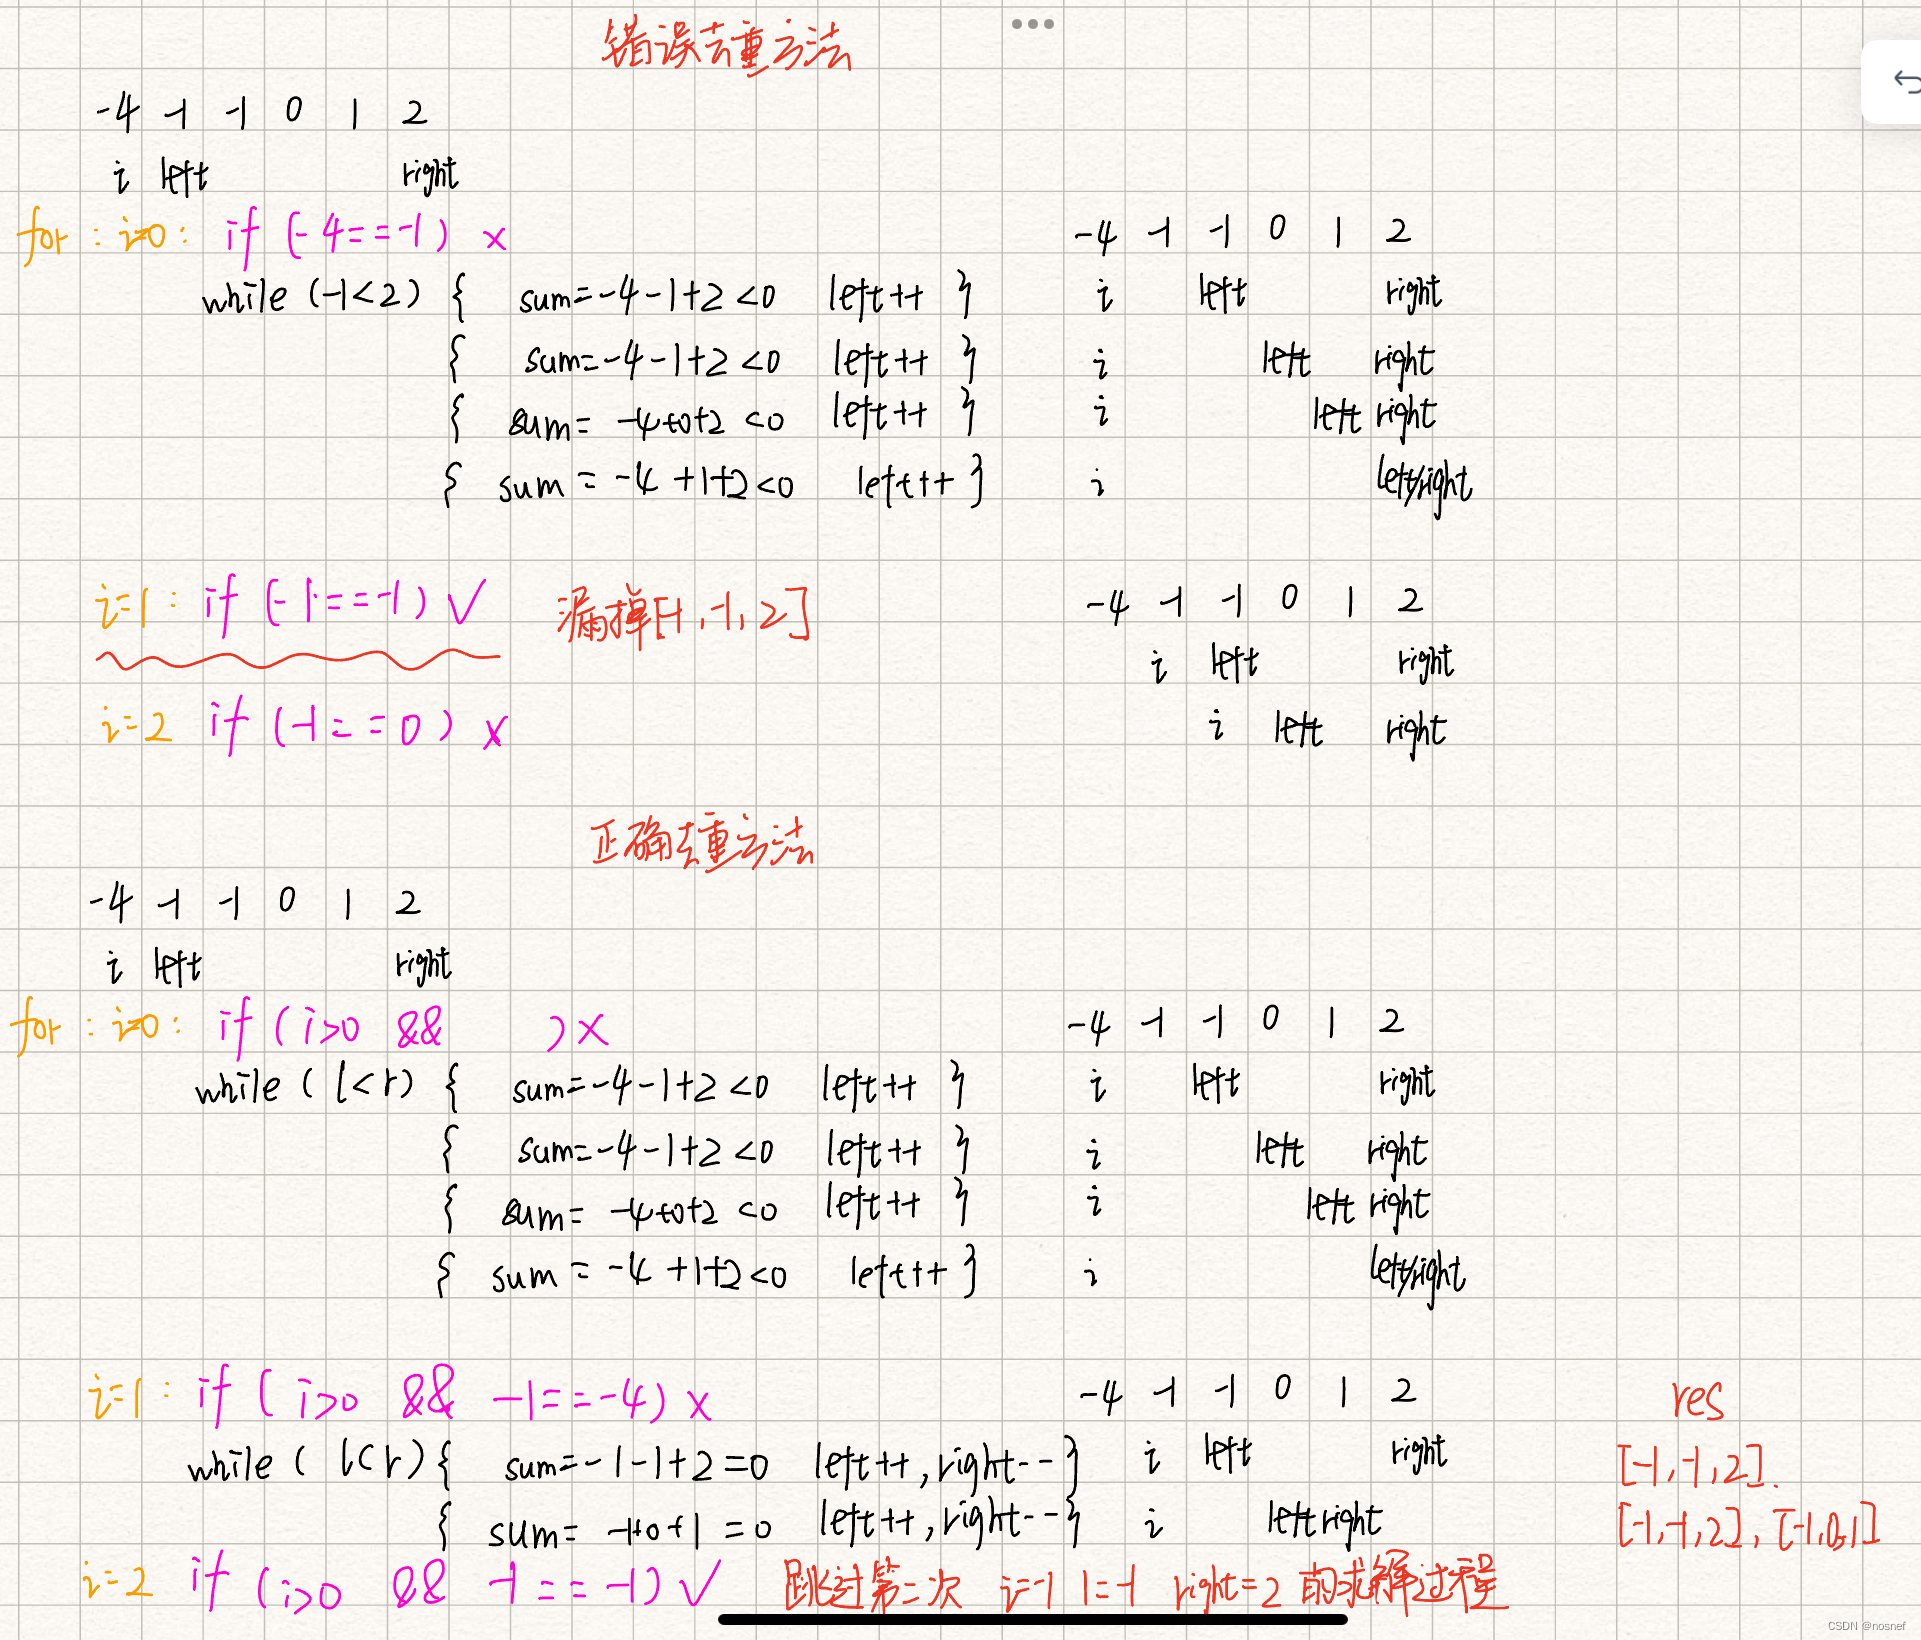 错误去重方法
-4 -1 -1 0 1 2
i left right
for : i=0 : if (-4==-1) x
-4 -1 -1 0 1 2
while (-1<2) { sum=-4-1+2<0 left++ } i left right
{ sum=-4-1+2<0 left++ } i left right
{ sum= -4+0+2 <0 left++ } i left right
{ sum = -4 +1+2<0 left++ } i left/right
i=1 : if (-1==-1) √ 漏掉[-1,-1,2]
-4 -1 -1 0 1 2
i left right
i=2 if (-1==0) x i left right
正确去重方法
-4 -1 -1 0 1 2
i left right
for : i=0 : if (i>0 && ) x
-4 -1 -1 0 1 2
while (l<r) { sum=-4-1+2<0 left++ } i left right
{ sum=-4-1+2<0 left++ } i left right
{ sum= -4+0+2 <0 left++ } i left right
{ sum = -4 +1+2<0 left++ } i left/right
i=1 : if (i>0 && -1==-4) x -4 -1 -1 0 1 2 res
while (l<r) { sum=-1-1+2=0 left++, right-- } i left right [-1,-1,2].
{ sum= -1+0+1 =0 left++, right-- } i left right [-1,-1,2], [-1,0,1]
i=2 if (i>0 && -1==-1) √ 跳过第二次 i=-1 l=-1 right=2 的求解过程
CSDN @nosnef